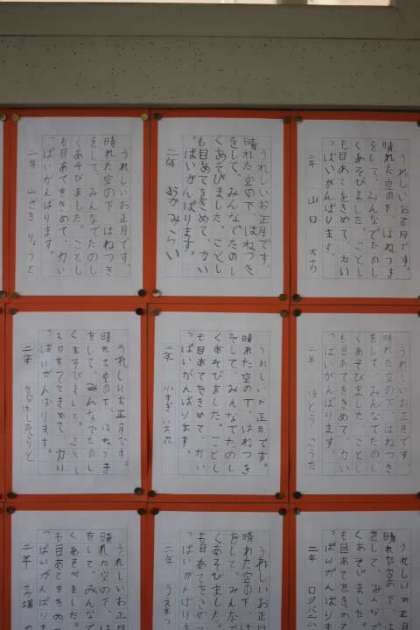 うれしいお正月です。
晴れた空の下、はねつき
をして、みんなでたのし
くあそびました。ことし
も目あてをきめて、力い
っぱいがんばります。
二年 山口
うれしいお正月です。
晴れた空の下、はねつき
をして、みんなでたのし
くあそびました。ことし
も目あてをきめて、力い
っぱいがんばります。
二年
うれしいお正月です。
晴れた空の下、はねつき
をして、みんなでたのし
くあそびました。ことし
も目あてをきめて、力い
っぱいがんばります。
二年
うれしいお正月です。
晴れた空の下、はねつき
をして、みんなでたのし
くあそびました。ことし
も目あてをきめて、力い
っぱいがんばります。
二年
うれしいお正月です。
晴れた空の下、はねつき
をして、みんなでたのし
くあそびました。ことし
も目あてをきめて、力い
っぱいがんばります。
二年
うれしいお正月です。
晴れた空の下、はねつき
をして、みんなでたのし
くあそびました。ことし
も目あてをきめて、力い
っぱいがんばります。
二年
うれしいお正月
晴れた空の下、は
をして、みんな
くあそびました
も目あてをきめ
っぱいがんばり
二年
うれしいお正
晴れた空の下
をして、みんな
くあそびました
も目あてをきめ
っぱいがんばり
二年
うれしいお正月
晴れた空の下、
をして、みんな
くあそびました
も目あてをきめ
っぱいがんば
二年